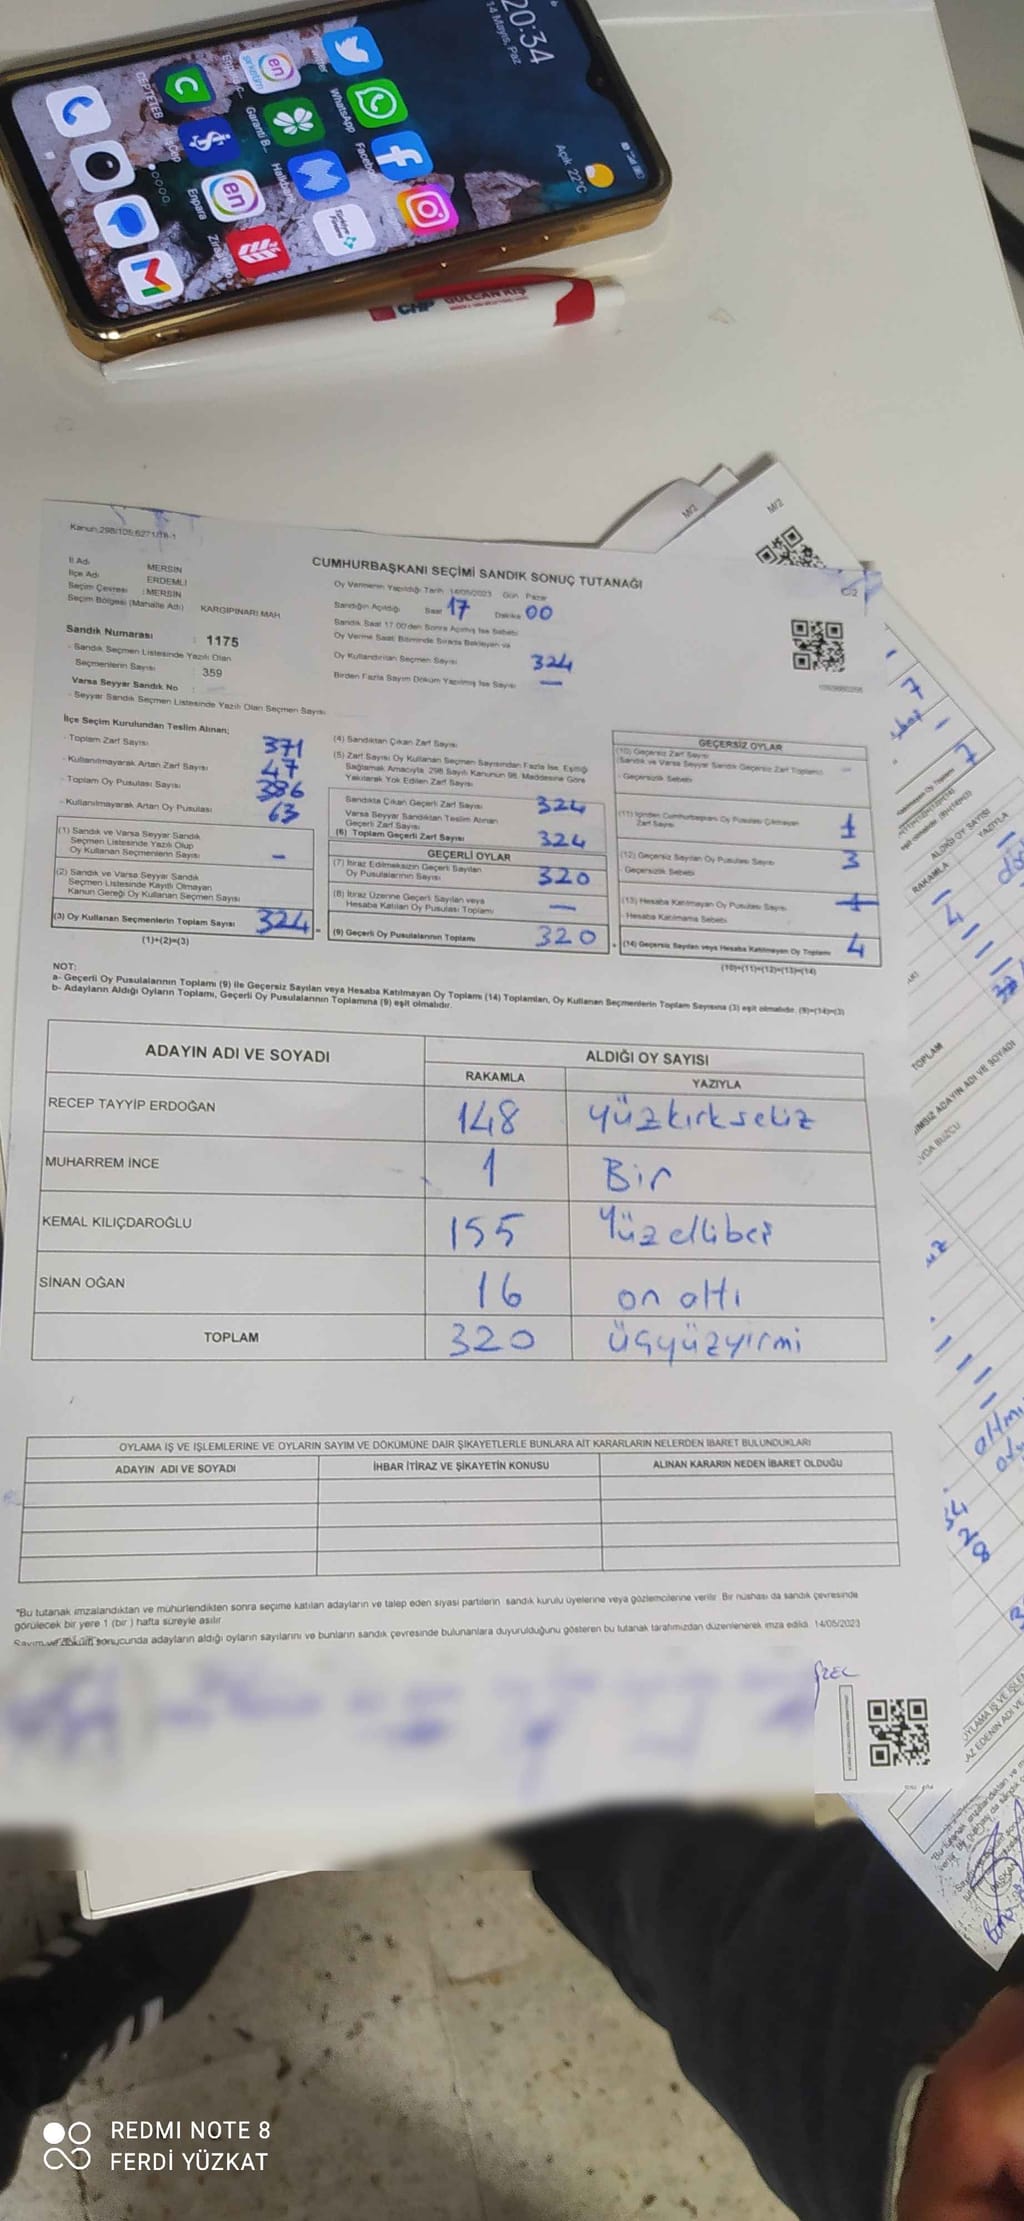 20:34
14 Mayıs, Paz
Açık 22°C
WhatsApp
Garanti B...
Halkbank
CEPTETEB
Enpara
CHP GÜLCAN KIŞ
M/2
M/2
Kanun;298/105;6271/18-1
İl Adı MERSİN
İlçe Adı ERDEMLİ
Seçim Çevresi : MERSİN
Seçim Bölgesi (Mahalle Adı) KARGIPINARI MAH
CUMHURBAŞKANI SEÇİMİ SANDIK SONUÇ TUTANAĞI
Oy Vermenin Yapıldığı Tarih 14/05/2023 Gün Pazar
Sandığın Açıldığı Saat 17 Dakika 00
Sandık Saat 17.00'den Sonra Açılmış İse Sebebi
Oy Verme Saati Bitiminde Sırada Bekleyen ve
Oy Kullandırılan Seçmen Sayısı 324
Birden Fazla Sayım Döküm Yapılmış İse Sayısı —
Sandık Numarası : 1175
- Sandık Seçmen Listesinde Yazılı Olan
Seçmenlerin Sayısı : 359
Varsa Seyyar Sandık No :
- Seyyar Sandık Seçmen Listesinde Yazılı Olan Seçmen Sayısı
İlçe Seçim Kurulundan Teslim Alınan;
- Toplam Zarf Sayısı 371
- Kullanılmayarak Artan Zarf Sayısı 47
- Toplam Oy Pusulası Sayısı 386
- Kullanılmayarak Artan Oy Pusulası 63
(1) Sandık ve Varsa Seyyar Sandık
Seçmen Listesinde Yazılı Olup
Oy Kullanan Seçmenlerin Sayısı —
(2) Sandık ve Varsa Seyyar Sandık
Seçmen Listesinde Kayıtlı Olmayan
Kanun Gereği Oy Kullanan Seçmen Sayısı
(3) Oy Kullanan Seçmenlerin Toplam Sayısı 324
(1)+(2)=(3)
(4) Sandıktan Çıkan Zarf Sayısı
(5) Zarf Sayısı Oy Kullanan Seçmen Sayısından Fazla İse, Eşitliği
Sağlamak Amacıyla, 298 Sayılı Kanunun 98. Maddesine Göre
Yakılarak Yok Edilen Zarf Sayısı
Sandıkta Çıkan Geçerli Zarf Sayısı 324
Varsa Seyyar Sandıktan Teslim Alınan
Geçerli Zarf Sayısı
(6) Toplam Geçerli Zarf Sayısı 324
GEÇERLİ OYLAR
(7) İtiraz Edilmeksizin Geçerli Sayılan
Oy Pusulalarının Sayısı 320
(8) İtiraz Üzerine Geçerli Sayılan veya
Hesaba Katılan Oy Pusulası Toplamı —
(9) Geçerli Oy Pusulalarının Toplamı 320
GEÇERSİZ OYLAR
(10) Geçersiz Zarf Sayısı
(Sandık ve Varsa Seyyar Sandık Geçersiz Zarf Toplamı) —
- Geçersizlik Sebebi
(11) İçinden Cumhurbaşkanı Oy Pusulası Çıkmayan
Zarf Sayısı 1
(12) Geçersiz Sayılan Oy Pusulası Sayısı 3
- Geçersizlik Sebebi
(13) Hesaba Katılmayan Oy Pusulası Sayısı
- Hesaba Katılmama Sebebi
(14) Geçersiz Sayılan veya Hesaba Katılmayan Oy Toplamı 4
(10)+(11)+(12)+(13)=(14)
NOT:
a- Geçerli Oy Pusulalarının Toplamı (9) ile Geçersiz Sayılan veya Hesaba Katılmayan Oy Toplamı (14) Toplamları, Oy Kullanan Seçmenlerin Toplam Sayısına (3) eşit olmalıdır. (9)+(14)=(3)
b- Adayların Aldığı Oyların Toplamı, Geçerli Oy Pusulalarının Toplamına (9) eşit olmalıdır.
ADAYIN ADI VE SOYADI ALDIĞI OY SAYISI
RAKAMLA YAZIYLA
RECEP TAYYİP ERDOĞAN 148 yüzkırksekiz
MUHARREM İNCE 1 Bir
KEMAL KILIÇDAROĞLU 155 Yüzellibeş
SİNAN OĞAN 16 on altı
TOPLAM 320 üçyüzyirmi
OYLAMA İŞ VE İŞLEMLERİNE VE OYLARIN SAYIM VE DÖKÜMÜNE DAİR ŞİKAYETLERLE BUNLARA AİT KARARLARIN NELERDEN İBARET BULUNDUKLARI
ADAYIN ADI VE SOYADI İHBAR İTİRAZ VE ŞİKAYETİN KONUSU ALINAN KARARIN NEDEN İBARET OLDUĞU
"Bu tutanak imzalandıktan ve mühürlendikten sonra seçime katılan adayların ve talep eden siyasi partilerin sandık kurulu üyelerine veya gözlemcilerine verilir. Bir nüshası da sandık çevresinde
görülecek bir yere 1 (bir ) hafta süreyle asılır.
Sayım ve döküm sonucunda adayların aldığı oyların sayılarını ve bunların sandık çevresinde bulunanlara duyurulduğunu gösteren bu tutanak tarafımızdan düzenlenerek imza edildi. 14/05/2023
RAKAMLA
YAZIYLA
TOPLAM
REDMI NOTE 8
FERDİ YÜZKAT